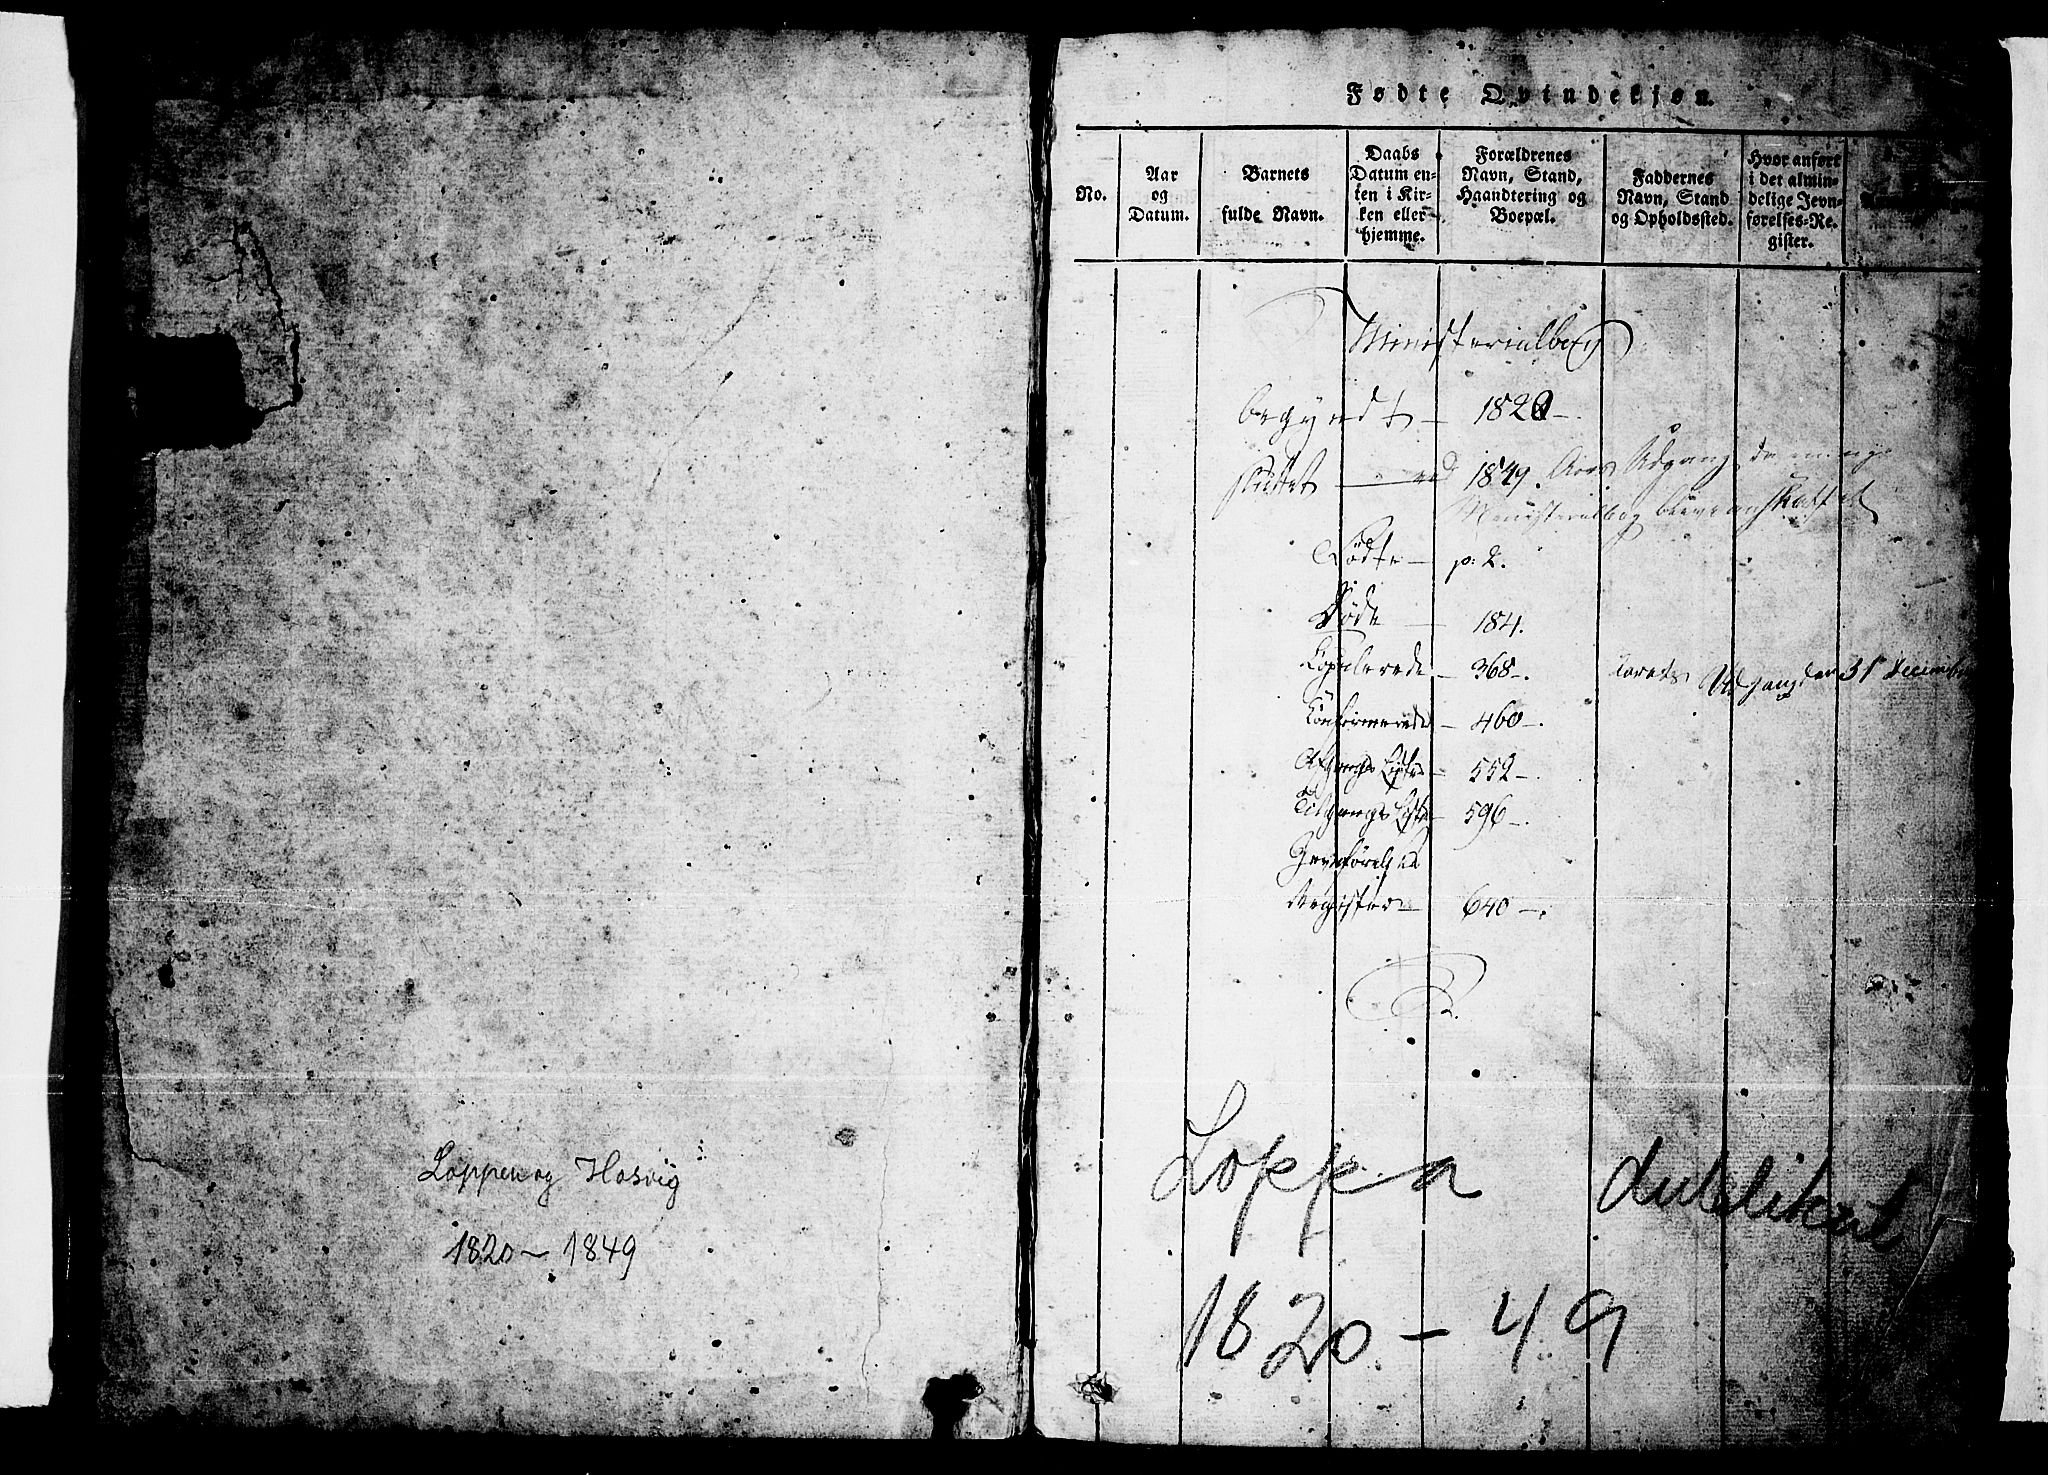 Loppen og Hasvig
1820 – 1849
Fødte Qvindekjøn.
No.
Aar
og
Datum.
Barnets
fulde Navn.
Daabs
Datum en-
ten i Kir-
ken eller
hjemme.
Forældrenes
Navn, Stand,
Haandtering og
Boepæl.
Faddernes
Navn, Stand
og Opholdssted.
Hvor anført
i det almin-
delige Jevn-
førelses-Re-
gister.
Ministerialbog
begyndt — 1820 —.
sluttet — ved 1849. Aars Udgang, da en nye
Ministerialbog blev anskaffet
Fødte — p: 2.
Døde — 184.
Copulerede — 368 —.
Aarets Udgang den 31 December
Confirmerede — 460 —.
Afgangs Liste — 552 —.
Tilgangs Liste — 596 —.
Jevnførelses
Register — 640 —.
Loppa dublikat
1820 – 49